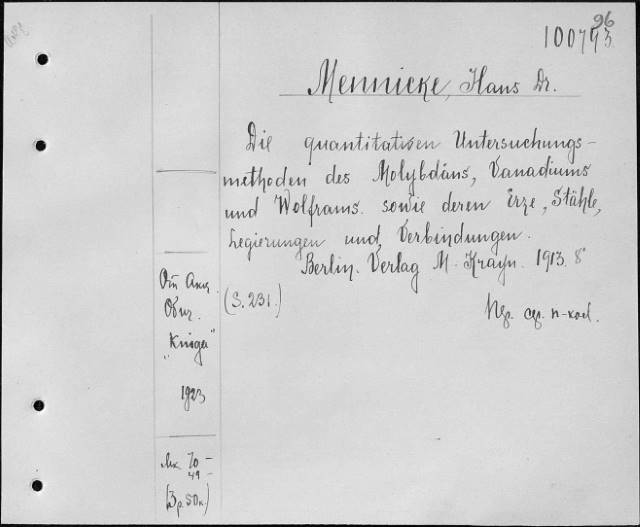 96
100793
Mennicke, Hans Dr.
Die quantitativen Untersuchungs-
methoden des Molybdäns, Vanadiums
und Wolframs. sowie deren Erze, Stähle,
Legierungen und Verbindungen.
Berlin. Verlag M. Krayn. 1913. 8°
(S. 231.)
"Kniga"
1923
70 -
49 -